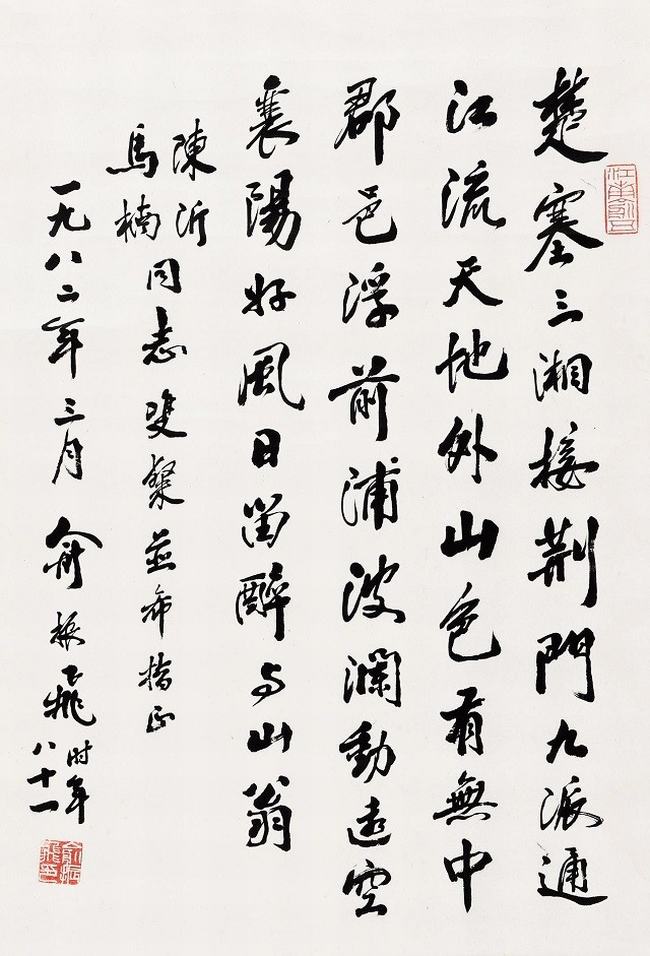 楚塞三湘接荆門九派通
江流天地外山色有無中
郡邑浮前浦波瀾動遠空
襄陽好風日留醉与山翁
陳沂
馬楠
同志雙粲並希指正
一九八二年三月俞振飛
时年
八十一
俞振飛印